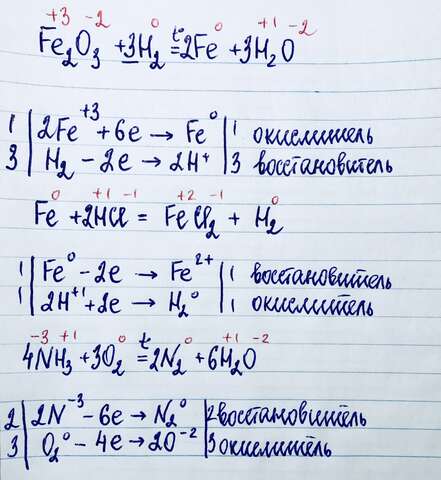 +3 -2 0 0 +1 -2
Fe₂O₃ + 3H₂ t°= 2Fe + 3H₂O
1 | 2Fe⁺³ + 6e → Fe⁰ | 1 окислитель
3 | H₂ - 2e → 2H⁺ | 3 восстановитель
0 +1 -1 +2 -1 0
Fe + 2HCl = FeCl₂ + H₂
1 | Fe⁰ - 2e → Fe²⁺ | 1 восстановитель
1 | 2H⁺¹ + 2e → H₂⁰ | 1 окислитель
-3 +1 0 0 +1 -2
4NH₃ + 3O₂ t= 2N₂ + 6H₂O
2 | 2N⁻³ - 6e → N₂⁰ | 2 восстановитель
3 | O₂⁰ - 4e → 2O⁻² | 3 окислитель